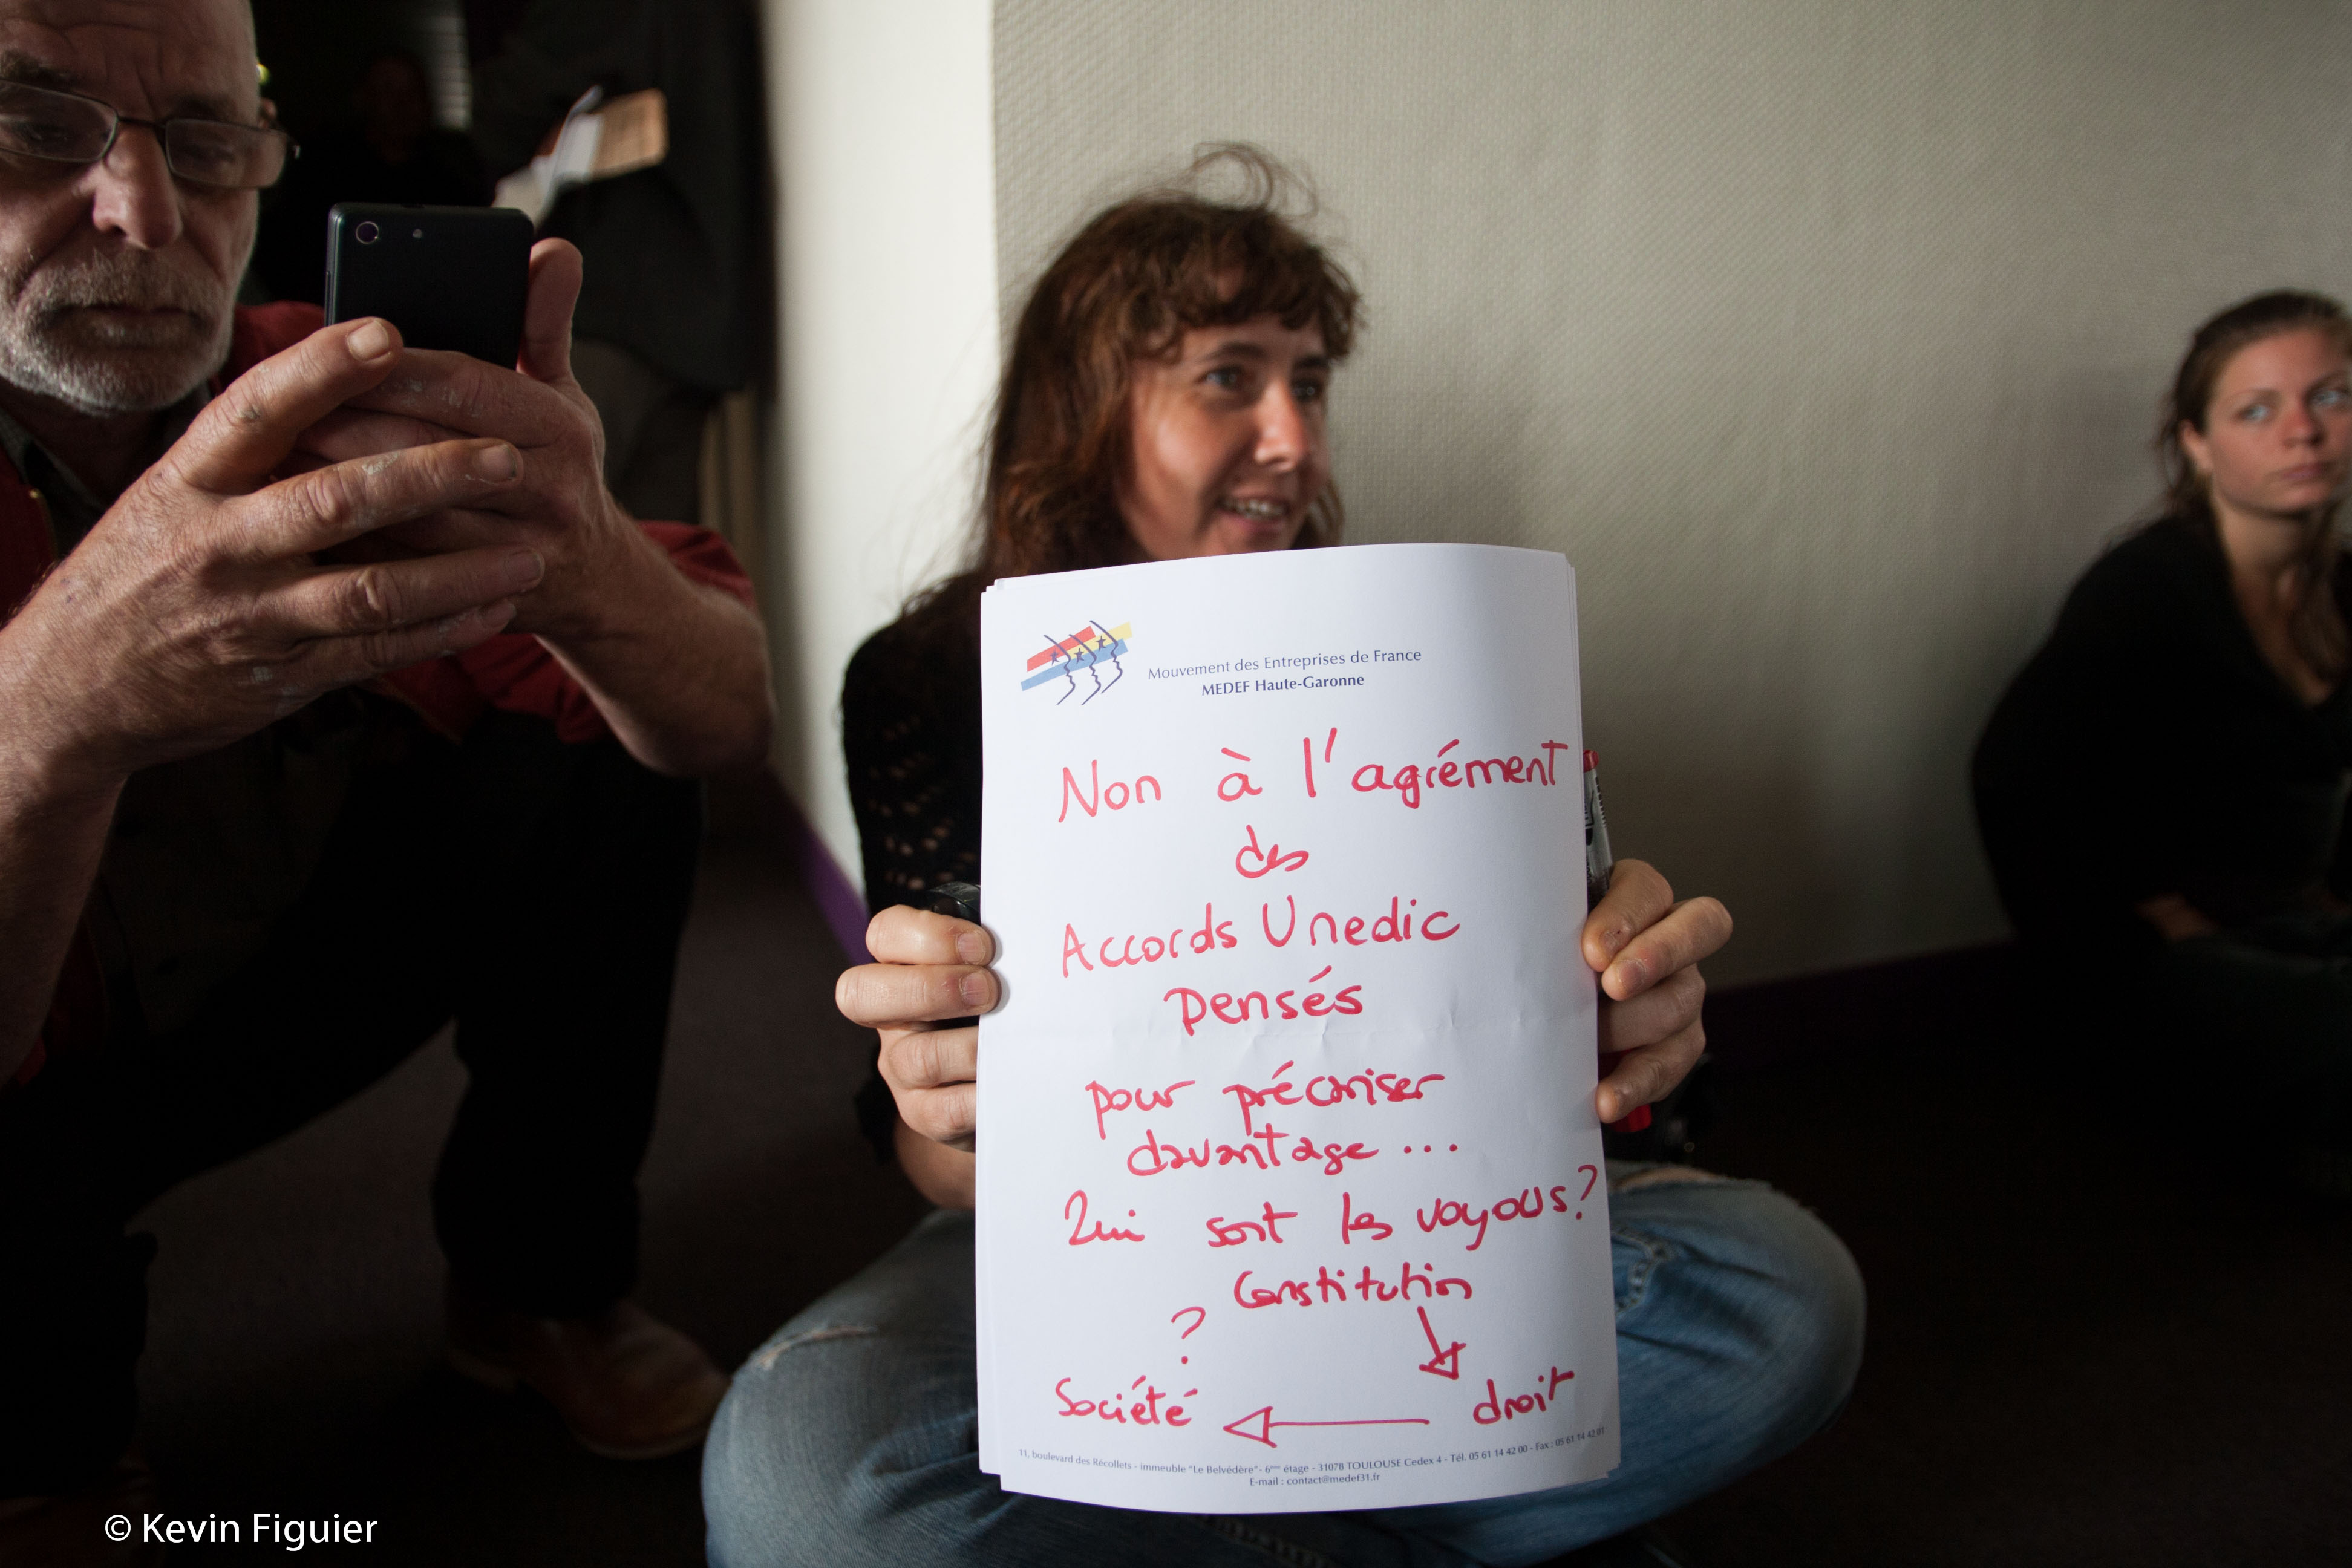 Mouvement des Entreprises de France
MEDEF Haute-Garonne
Non à l'agrément
des
Accords Unedic
pensés
pour précariser
davantage ...
Qui sont les voyous ?
Constitution
?
Société
droit
11, boulevard des Récollets - immeuble "Le Belvédère" - 6ème étage - 31078 TOULOUSE Cedex 4 - Tél. 05 61 14 42 00 - Fax : 05 61 14 42 01
E-mail : contact@medef31.fr
© Kevin Figuier